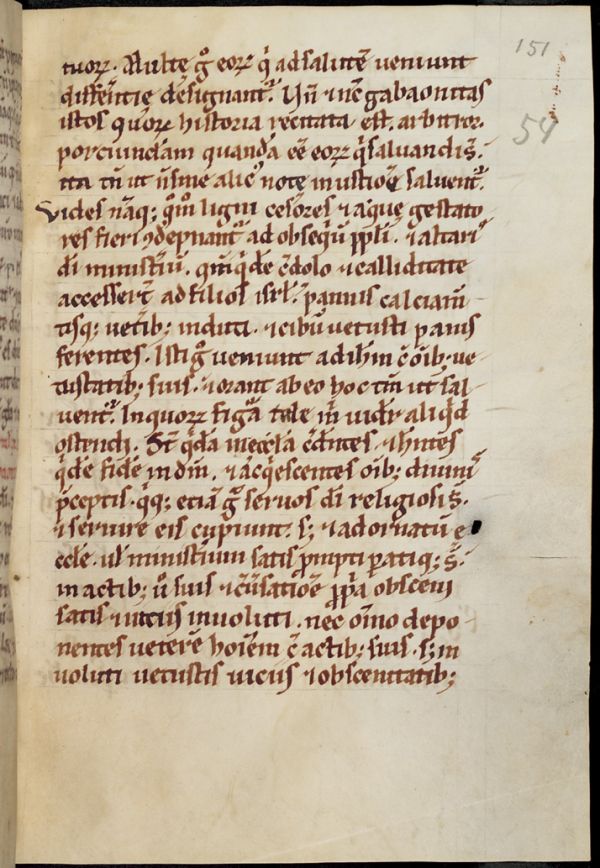 151
54
tuoꝝ. Multę gͦ eoꝝ q̇ ad salutē ueniunt
differentię designant᷑. Vn̄ ⁊ nc̄ gabaonitas
istos quoꝝ historia recitata est. arbitror.
porciunclam quandā eē eoꝝ q̇ saluandi s̄.
ita tn̄ ut n̄ sine alic᷒ notę inustiōe saluent᷑.
Vides nāq; qm̊ ligni cesores ⁊ aquę gestato
res fieri ꝯdepnant᷑ ad obsequiū ppl̄i. ⁊ altari᷒
dī ministeriū. qm̄ q̇de c̄ dolo ⁊ calliditate
accesserт̄ ad filios isrl̄. pannis calciam̄
tisq; uetib; induti. ⁊ cibū uetusti panis
ferentes. Isti gͦ ueniunt ad ihm̄ c̄ oīb; ue
tustatib; suis. ⁊ orant ab eo hoc tm̄ ut sal
uent᷑. In quoꝝ figͣ tale m̄ uidet᷑ aliqd
ostendi. St̄ q̇dā in ęccl̄a c̄dentes. ⁊ hn̄tes
q̇de fidē in dm̄. ⁊ acq̇escentes oīb; diuini᷒
p̄ceptis. q̇q; etiā gͣ seruos dī religiosi s̄.
⁊ seruire eis cupiunt. s; ⁊ ad ornatū e
ccl̄e. ul̄ ministerium satis prompti paratiq; s̄.
in actib; ů suis ⁊ cūersatiōe pp̄a obsceni
satis ⁊ uiciis inuoluti. nec om̄o depo
nentes ueterē hoīem c̄ actib; suis. s; in
uoluti uetustis uiciis ⁊ obscenitatib;